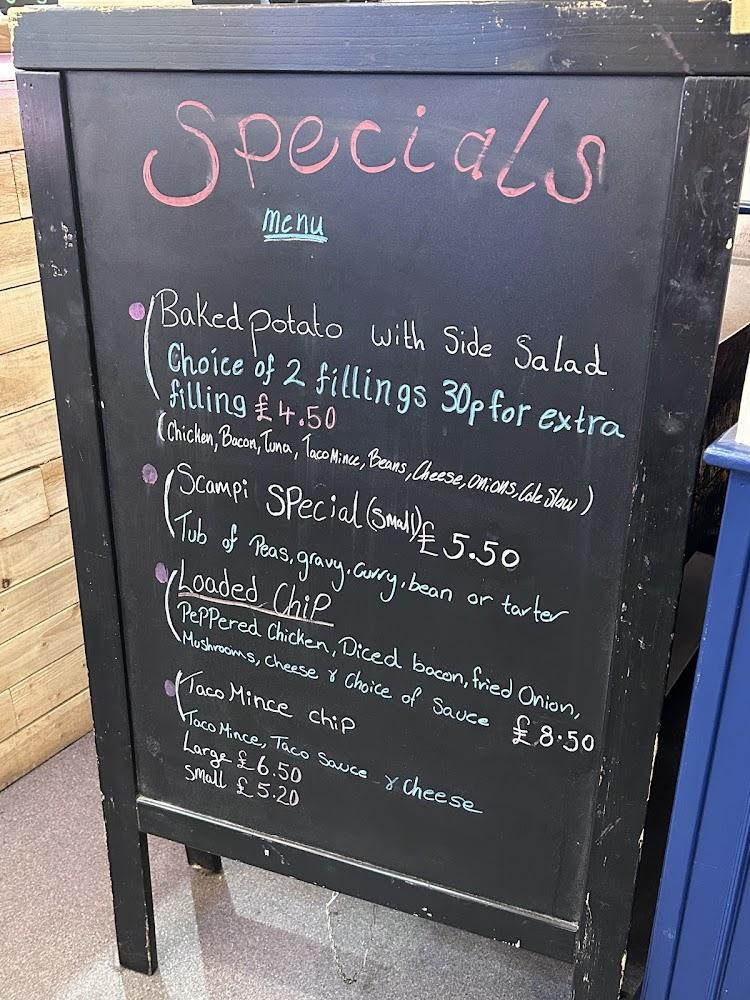 Specials
menu
Baked potato with Side Salad
Choice of 2 fillings 30p for extra
filling £4.50
(Chicken, Bacon, Tuna, Taco Mince, Beans, Cheese, onions, Cole Slow)
Scampi Special (Small) £5.50
Tub of Peas, gravy, Curry, bean or tarter
Loaded Chip
Peppered Chicken, Diced bacon, fried Onion,
Mushrooms, cheese & Choice of Sauce £8.50
Taco Mince chip
Taco Mince, Taco Sauce & Cheese
Large £6.50
Small £5.20